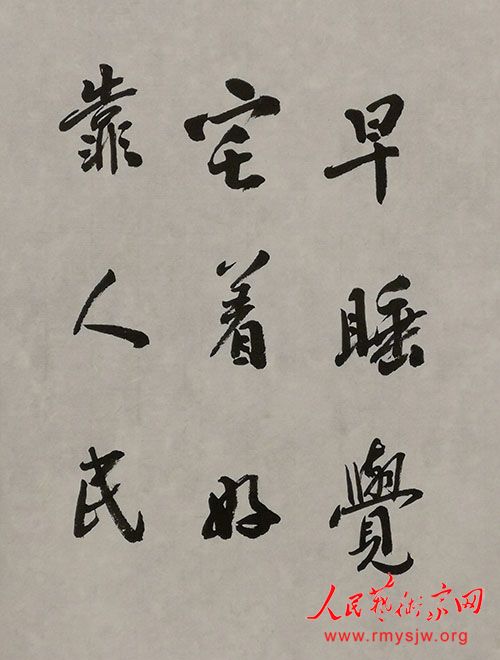 早睡覺
宅着好
靠人民
人民藝術家网
www.rmysjw.org